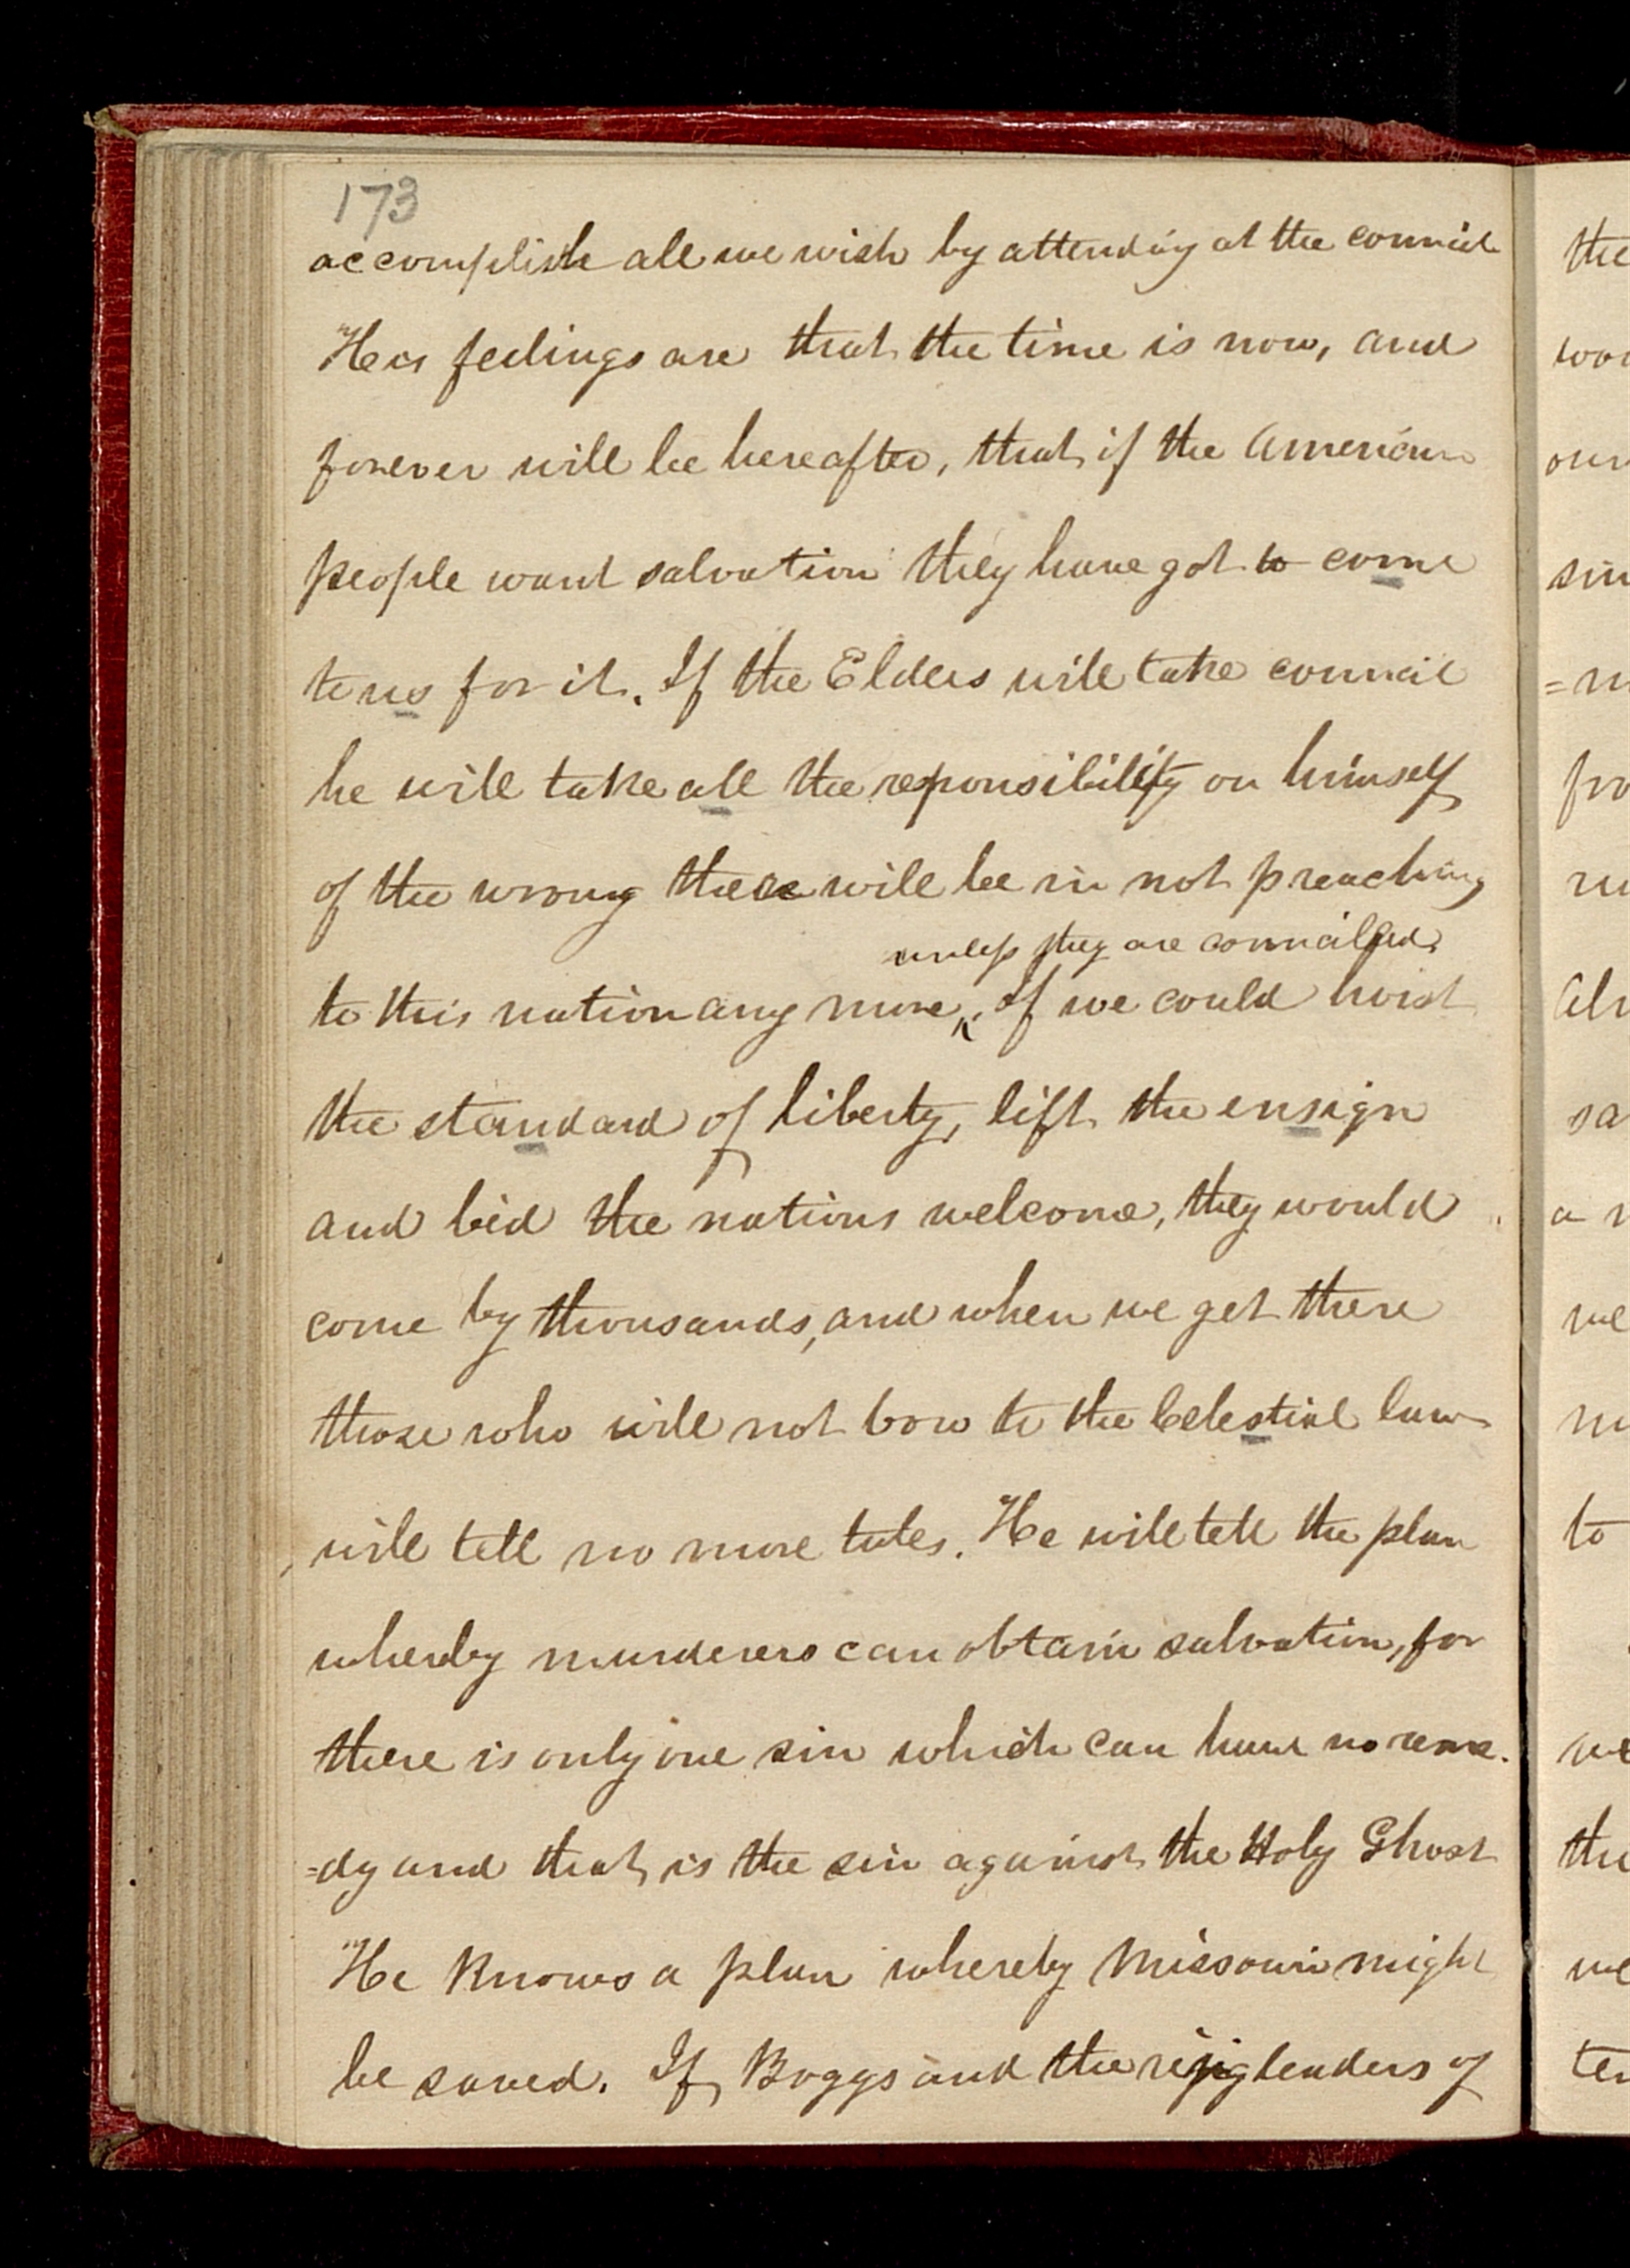 173
accomplish all we wish by attending at the council
His feelings are that the time is now, and
forever will be hereafter, that if the American
people want salvation they have got to come
to us for it. If the Elders will take council
he will take all the responsibility on himself
of the wrong there will be in not preaching
unless they are councilled
to this nation any more, If we could hoist
the standard of liberty, lift the ensign
and bid the nations welcome, they would
come by thousands, and when we get there
those who will not bow to the Celestial law
will tell no more tales. He will tell the plan
whereby murderers can obtain salvation, for
there is only one sin which can have no reme
=dy and that is the sin against the Holy Ghost
He knows a plan whereby Missouri might
be saved. If Boggs and the ringleaders of
the
sin
=
fro
sa
a
we
to
we
the
we